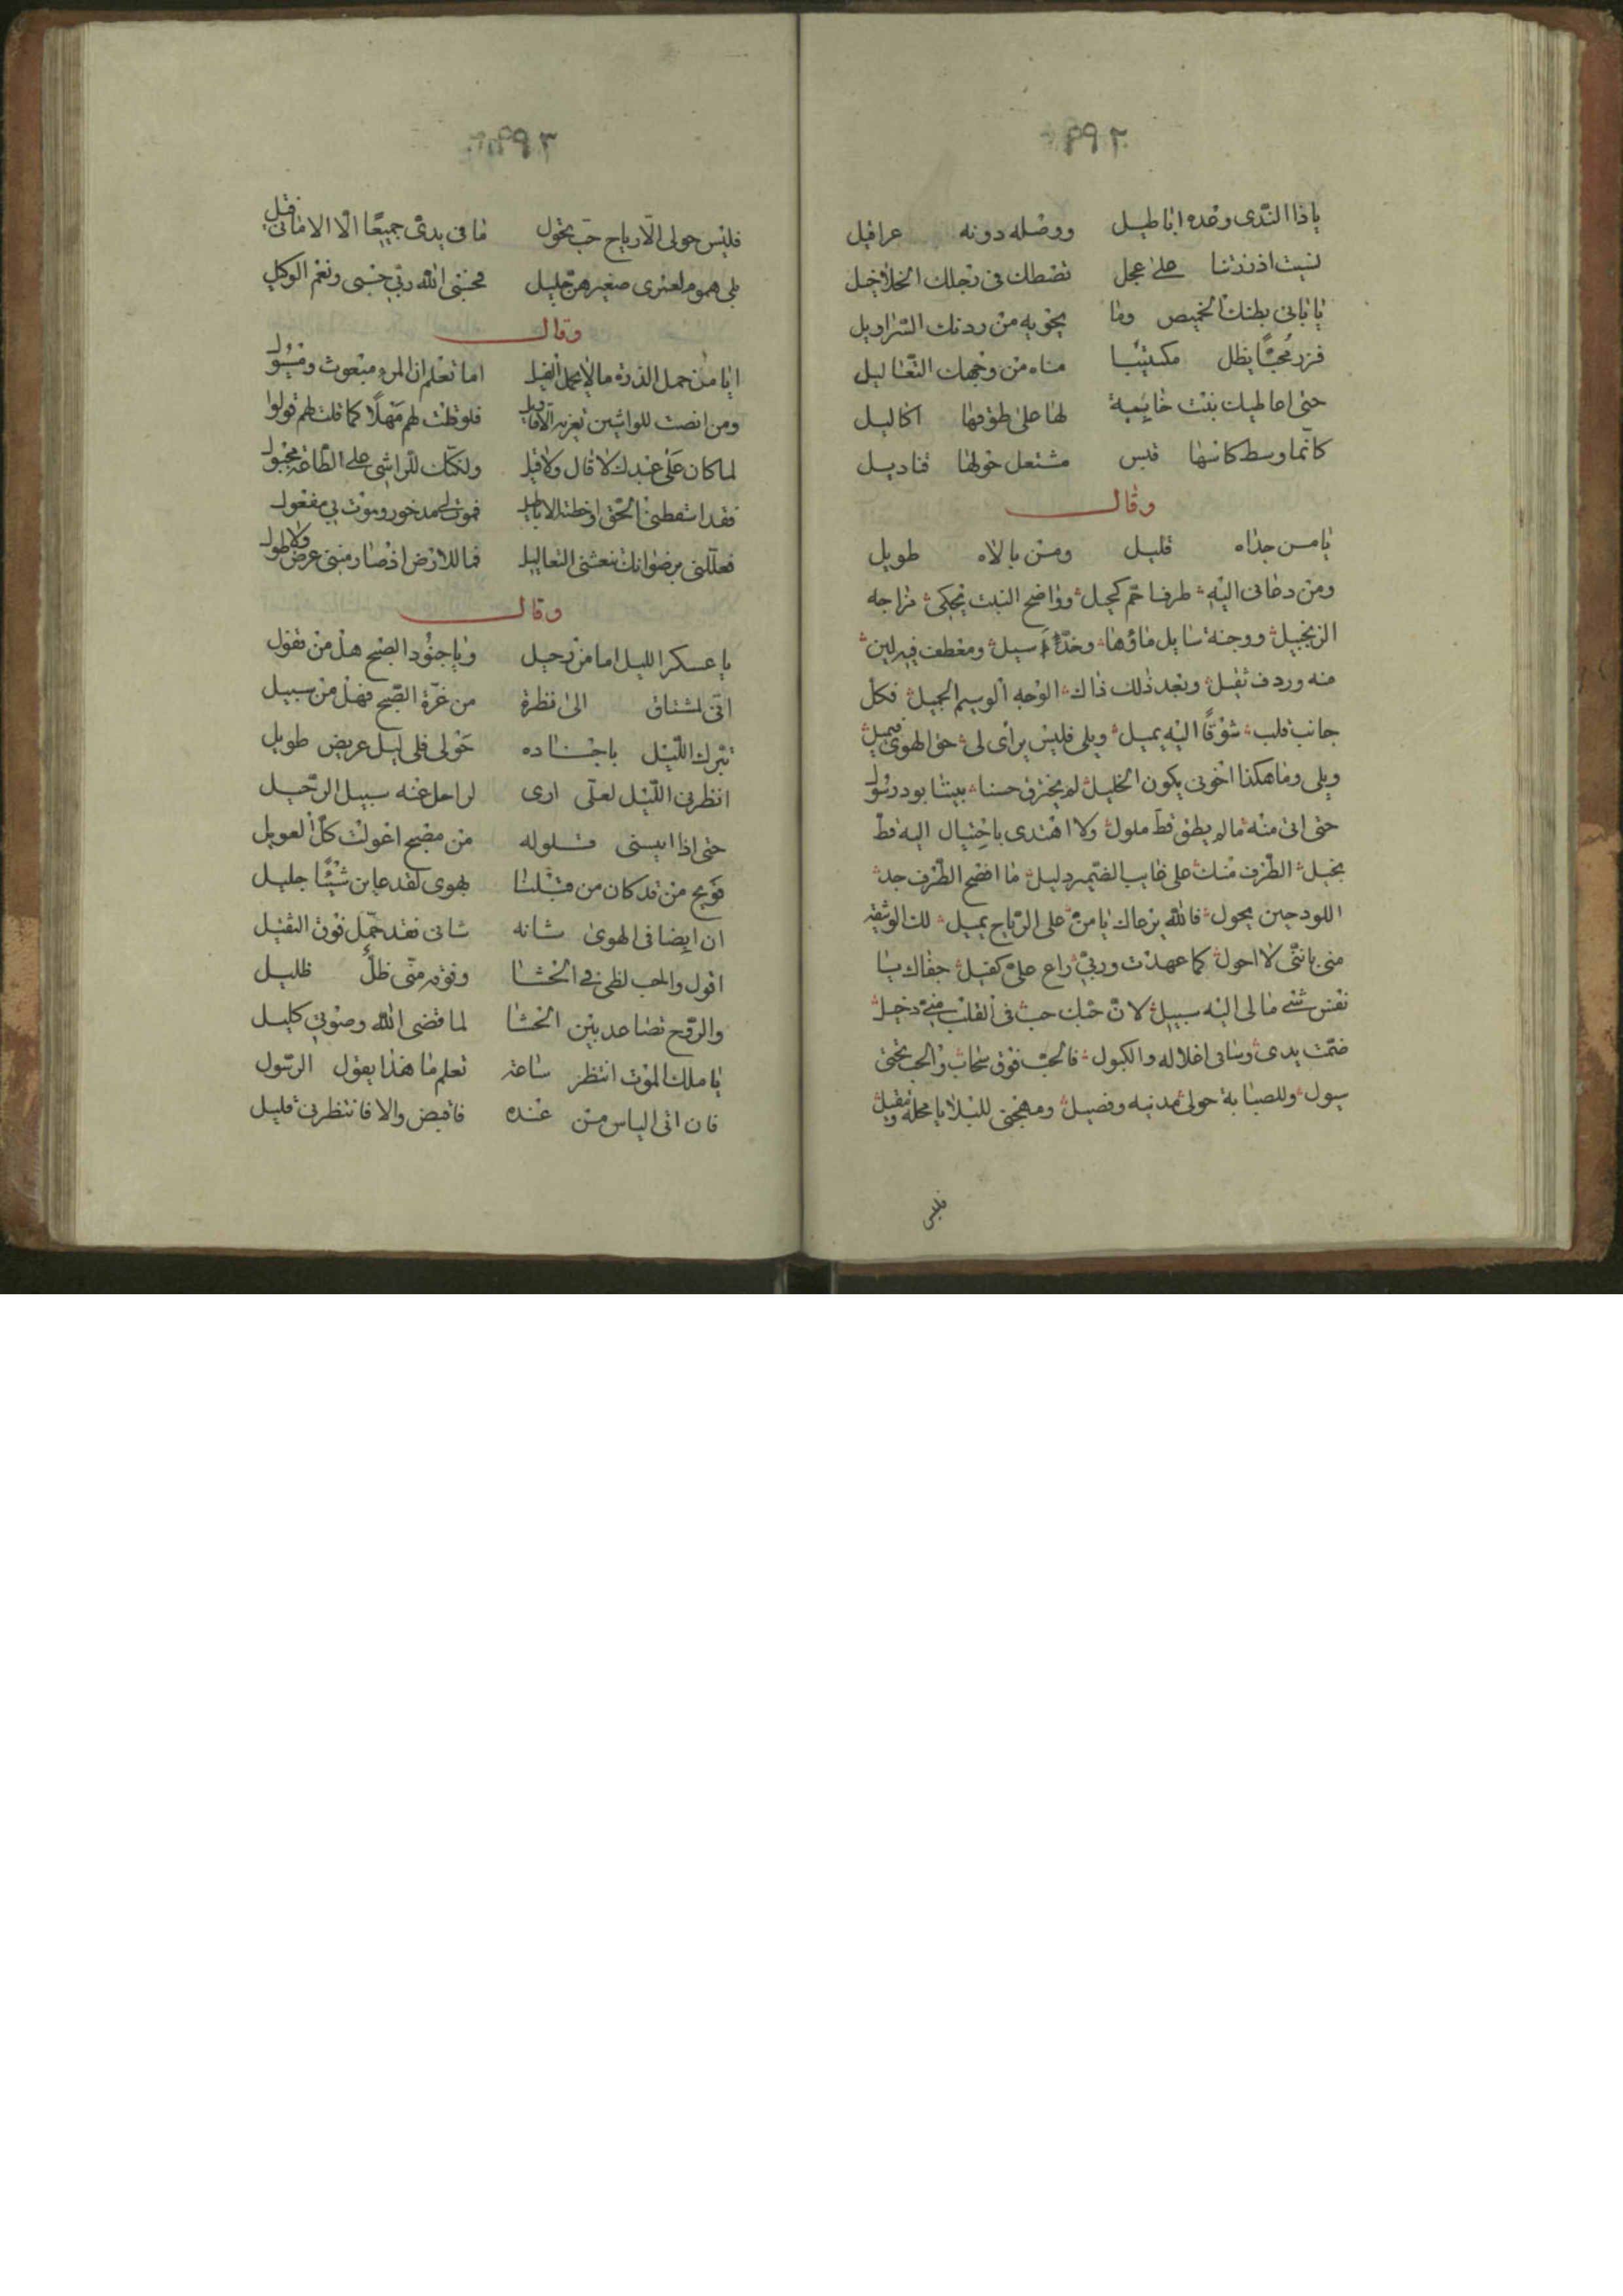 ٢٩٢
ياذا الندى وعده اباطيل ووصله دونه عراقيل
نسيت اذ زرتنا على عجل تضطك في رجلك الخلاخيل
يا بابي بطنك الخميص وما يحويه من ردنك السراويل
فزر محبا يظل مكتئبا مناه من وجهك التعاليل
حتى اعاطيك بنت خابية لها على طوقها اكاليل
كانما وسط كاسها قبس مشتعل حولها قناديل
وقال
يا من جداه قليل ومن بالاه طويل
ومن دعاني اليه طرف احم كحيل وواضح النبت يحكي مزاجه
الزنجبيل ووجنة سايل ماؤها وخد اسيل ومعطف فيه لين
منه وردف ثقيل وبعد ذلك ذاك الوجه الوسيم الجميل فكل
جانب قلب شوقا اليه يميل ويلي فليس يرأى لي حق الهوى فيميل
ويلي وما هكذا اخوتي يكون الخليل لم يخترق حسنا بيتنا بود رسول
حتى اتى منه مالم يطق قط ملول ولا اهتدى باحتيال اليه قط
بخيل الطرف منك على غايب الضمير دليل ما افضح الطرف جد
اللود حين يحول فالله يرعاك يا من على الرياح يميل لك الوثيقة
مني بانني لا احول كما عهدت وربي راع علي كفيل جفاك يا
نفس شئ مالي اليه سبيل لان حبك حب في القلب مني دخيل
ضمت يدي وساقي اغلاله والكبول فالحب فوق سحاب والحب تحتي
سيول وللصبابة حولي مدنيه وفصيل ومهجتي للبلايا محلة ومقيل
فليس
٢٩٣
فليس حولي الا رياح حب تجول ما في يدي جميعا الا الاماني قيل
بلي هموم لعمري صغيرهن جليل فحسبي الله ربي حسبي ونعم الوكيل
وقال
ايا من حمل الذرة ما لا يحمل الفيل اما تعلم ان المرء مبعوث ومسئول
ومن انصت للواشين تغريه الاقاويل فلو قلت لهم مهلا كما قلت لهم قولوا
لما كان على عبدك لا قال ولا قيل ولكنك للواشي على الطاعة مجبول
فقد اسقطني الحق اوخطته الاباطيل فموت مذخور وموت بي مفعول
فعللني برضوانك تنعشني التعاليل فما للارض اذ صار مني عرض ولا طول
وقال
يا عسكر الليل اما من رحيل ويا جنود الصبح هل من قفول
اني لمشتاق الى نظرة من غرة الصبح فهل من سبيل
تبرك الليل باجناده حولي فلي ليل عريض طويل
انظرني الليل لعلي ارى لراحل عنه سبيل الرحيل
حتى اذا ايسني قلولله من مصبح اعولت كل العويل
فويح من قد كان من قبلنا يهوى لقد عاين شيئا جليل
ان ايضا في الهوى شانه شاني فقد حمل فوق الثقيل
اقول والحب لظى في الحشا وفوقه مني ظل ظليل
والروح تصاعد بين الحشا لما قضى الله وصوتي كليل
يا ملك الموت انتظر ساعة تعلم ما هذا يقول الرسول
فان اتى الياس من عنده فاقبض والا فانتظرني قليل